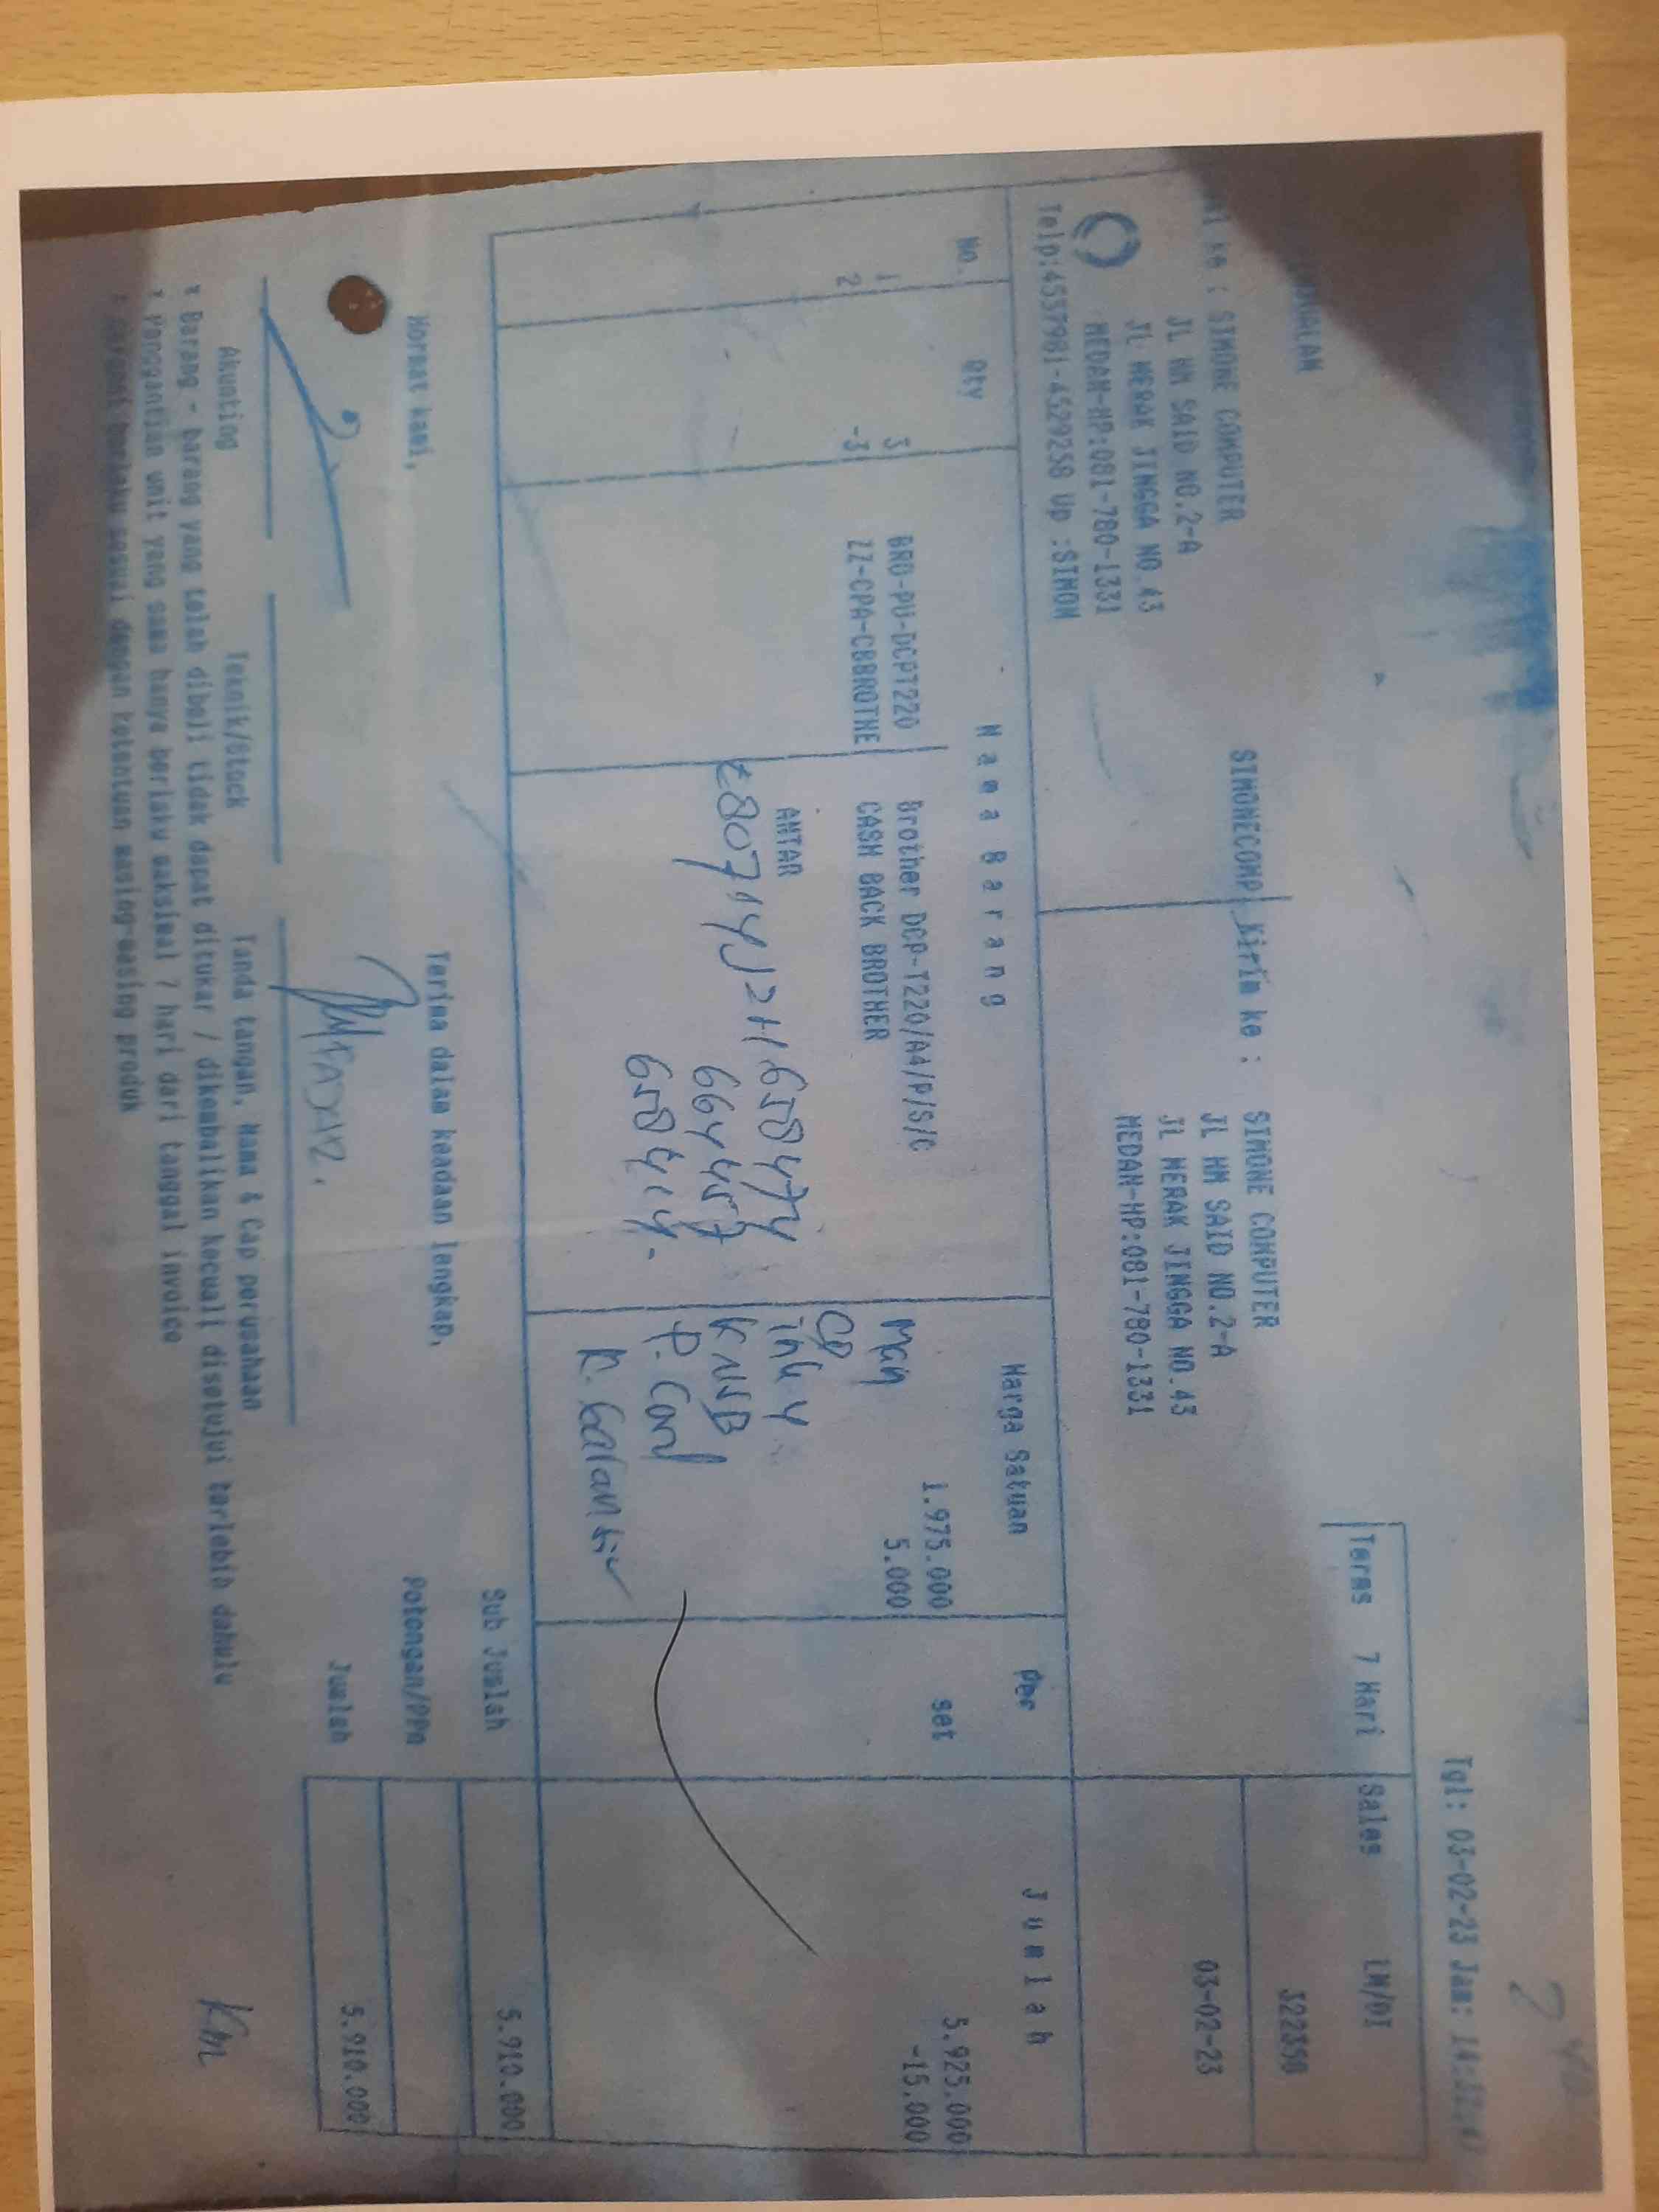 Tgl: 03-02-23 Jam:
Terms 7 Hari Sales LM/DI
SIMONE COMPUTER SIMONECOMP Kirim ke : SIMONE COMPUTER
JL HM SAID NO.2-A JL HM SAID NO.2-A
JL MERAK JINGGA NO.43 JL MERAK JINGGA NO.43 03-02-23
MEDAN-HP:081-780-1331 MEDAN-HP:081-780-1331
Telp:4557981-4529258 Up :SIMON
No. Qty Nama Barang Harga Satuan Per Jumlah
1 3 BRO-PU-DCPT220 Brother DCP-T220/A4/P/S/C 1.975.000 set 5.925.000
2 -3 ZZ-CPA-CBBROTHE CASH BACK BROTHER 5.000 -15.000
Main
CD
ANTAR
658474 ink 4
664457 K USB
658414.
K. Garansi
Sub Jumlah 5.910.000
Hormat kami, Terima dalam keadaan lengkap, Potongan/PPn
Jumlah 5.910.000
Akunting Teknik/Stock Tanda tangan, Nama & Cap perusahaan
* Barang - barang yang telah dibeli tidak dapat ditukar / dikembalikan kecuali disetujui terlebih dahulu
* Penggantian unit yang sama hanya berlaku maksimal 7 hari dari tanggal invoice
* Garansi berlaku sesuai dengan ketentuan masing-masing produk